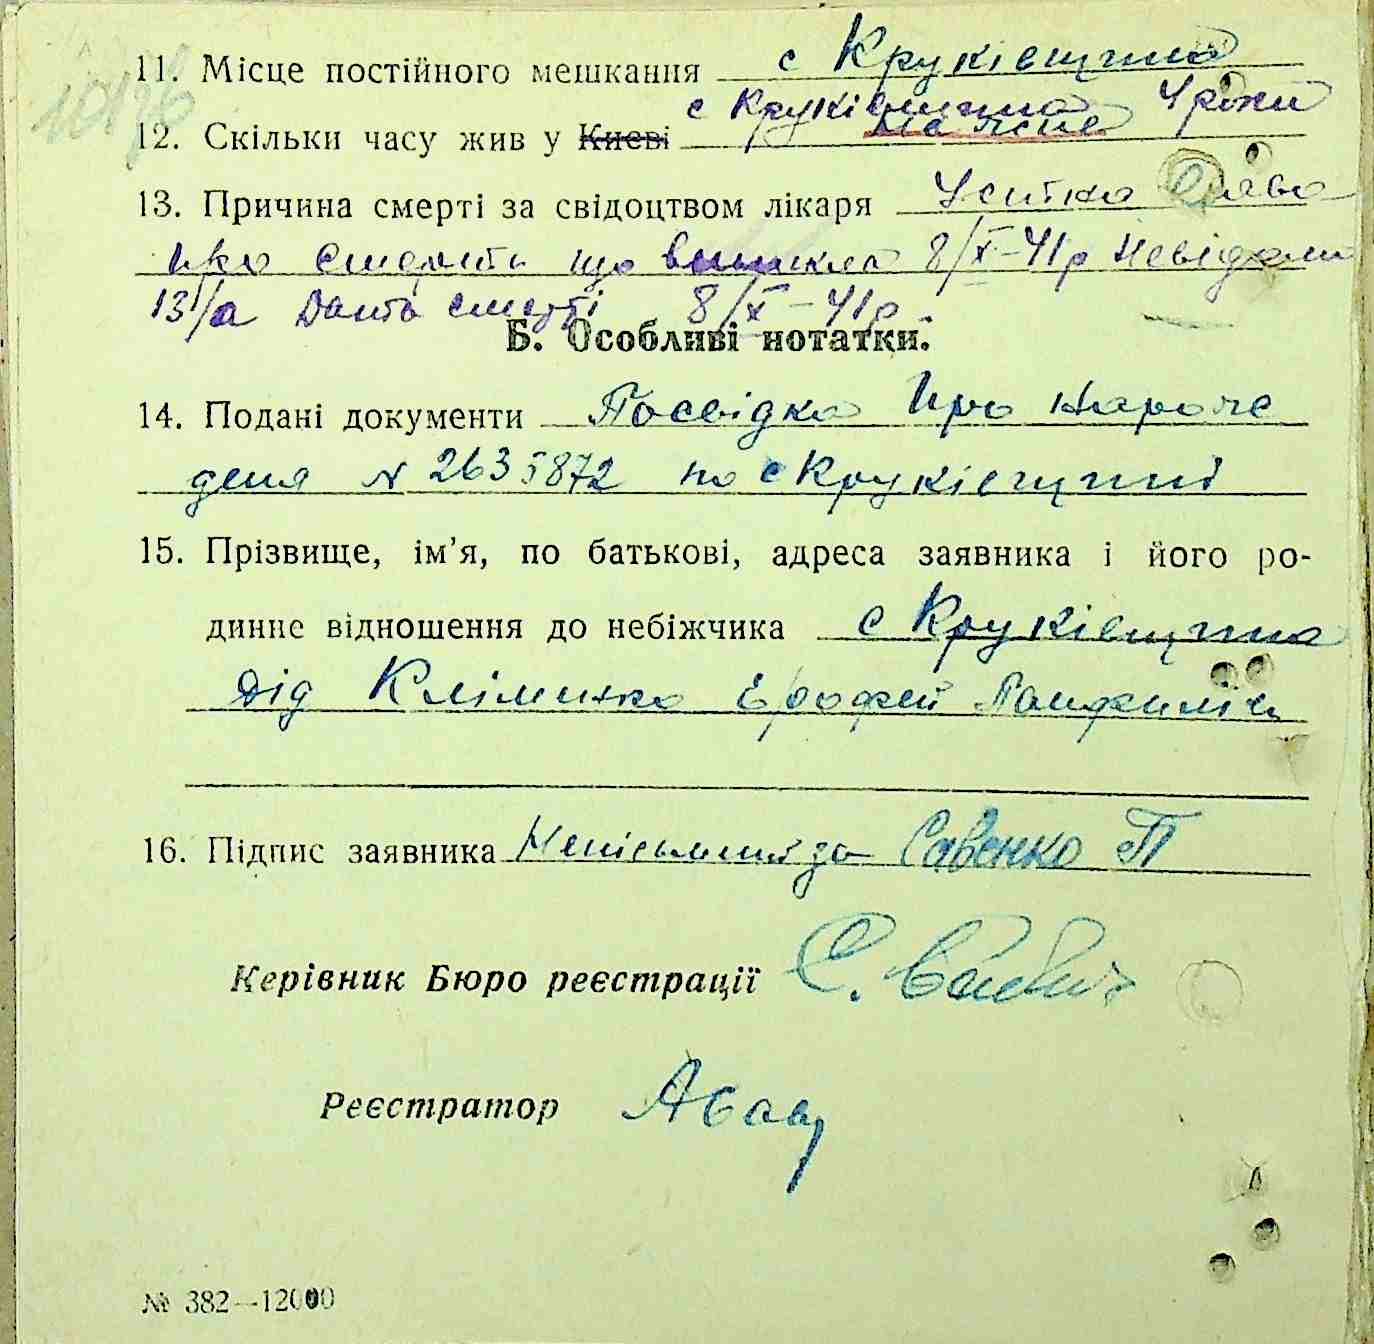 11. Місце постійного мешкання с Круківщина
с Круківщина 4 роки
12. Скільки часу жив у Києві
13. Причина смерті за свідоцтвом лікаря Устна Заява
про Смерть що виникла 8/X-41р Невідома
13/а Дата смерті 8/X-41р.
Б. Особливі нотатки.
14. Подані документи Посвідка про народже
деня № 2635872 по с Круківщині
15. Прізвище, ім’я, по батькові, адреса заявника і його ро-
динне відношення до небіжчика с Круківщина
Дід Кліменко Ерофей Панфилів
16. Підпис заявника за Савенко П
Керівник Бюро реєстрації
Реєстратор
№ 382—12000